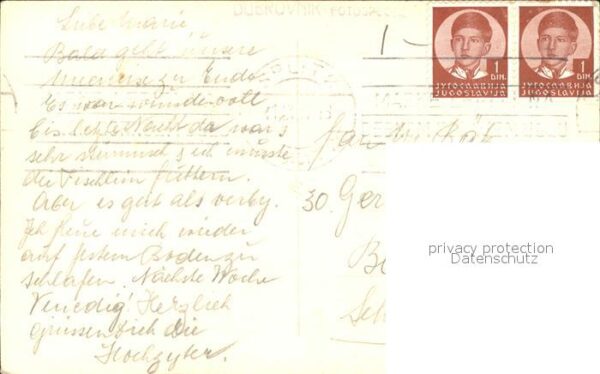 DUBROVNIK
Liebe Marie
Bald geht unsere
zu Ende.
Es war wundervoll
bis letzte Nacht da war's
sehr stürmisch & ich musste
die Fischlein füttern.
Aber es gut als verby.
Ich freue mich wieder
auf festem Boden zu
schlafen. Nächste Woche
Venedig! Herzlich
grüssen Dich Die
Hochzyter.
SPLIT
1 -
1 DIN.
ЈУГОСЛАВИЈА
JUGOSLAVIJA
1 DIN.
ЈУГОСЛАВИЈА
JUGOSLAVIJA
30. Ger
Sch
privacy protection
Datenschutz